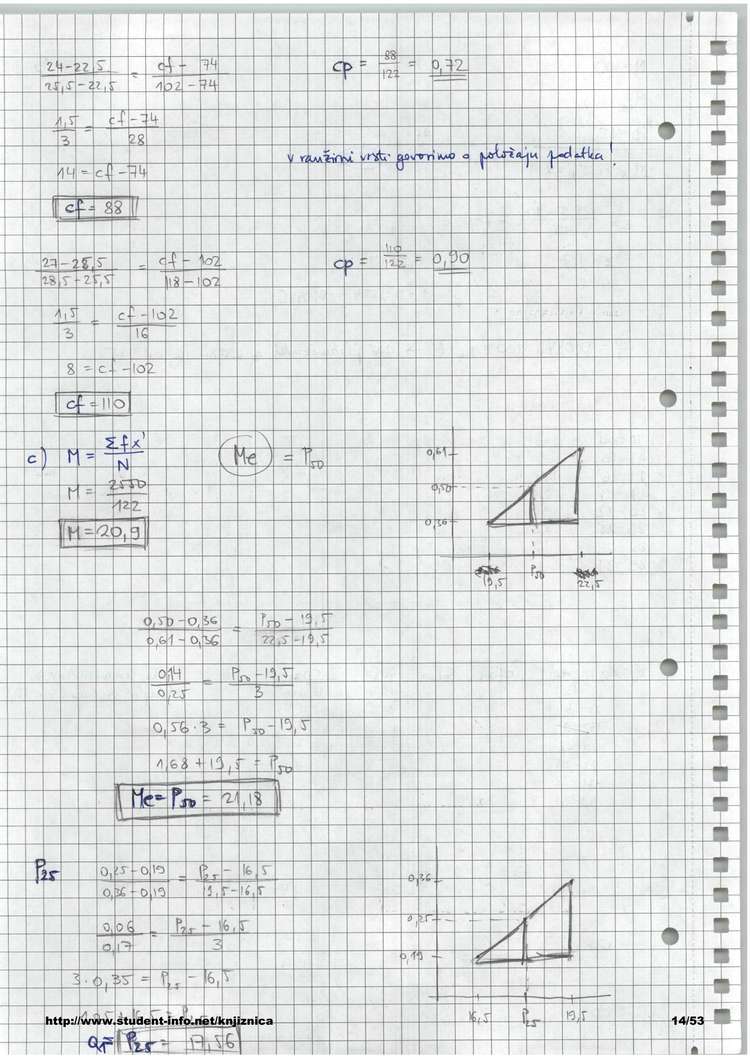 24-22,5 / 25,5-22,5 = cf - 74 / 102-74
cp = 88/122 = 0,72
1,5/3 = cf-74 / 28
v ranžirni vrsti govorimo o položaju podatka!
14 = cf-74
cf = 88
27-25,5 / 28,5-25,5 = cf - 102 / 118-102
cp = 110/122 = 0,90
1,5/3 = cf-102 / 16
8 = cf-102
cf = 110
c) M = Σfx' / N
Me = P50
M = 2550/122
M = 20,9
0,61
0,50
0,36
19,5 P50 22,5
0,50-0,36 / 0,61-0,36 = P50-19,5 / 22,5-19,5
0,14/0,25 = P50-19,5 / 3
0,56·3 = P50-19,5
1,68+19,5 = P50
Me = P50 = 21,18
P25
0,25-0,19 / 0,36-0,19 = P25-16,5 / 19,5-16,5
0,06/0,17 = P25-16,5 / 3
3·0,35 = P25-16,5
0,36
0,25
0,19
16,5 P25 19,5
http://www.student-info.net/knjiznica
14/53
P25 = 17,56